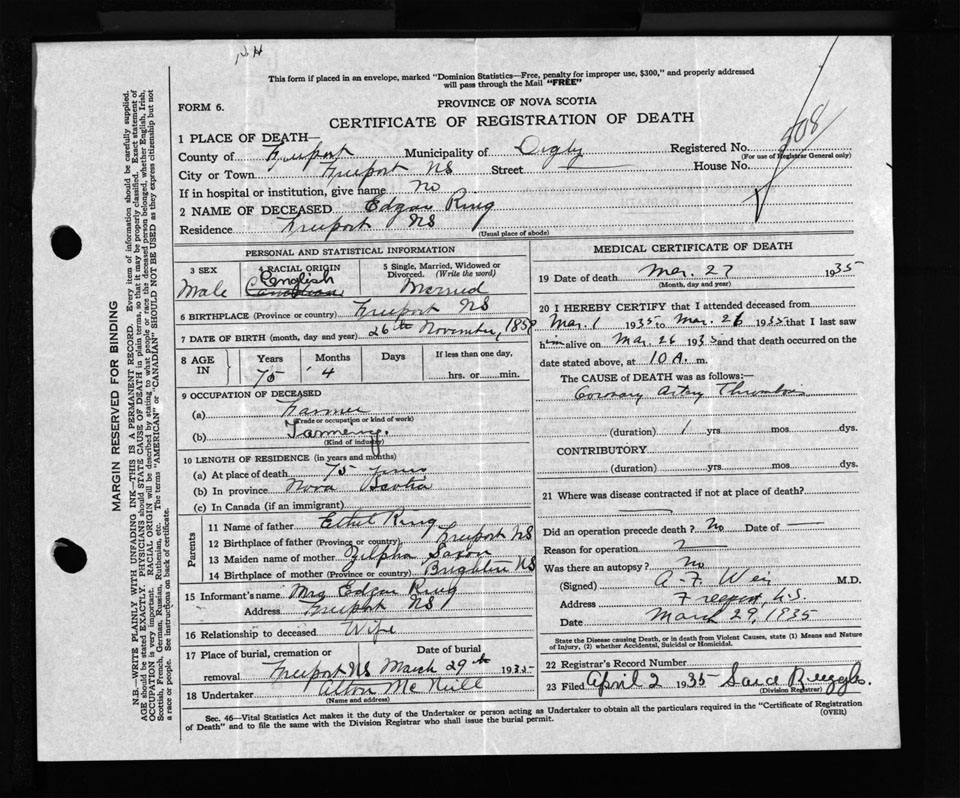 N.H
This form if placed in an envelope, marked "Dominion Statistics—Free, penalty for improper use, $300," and properly addressed
will pass through the Mail "FREE"
FORM 6.
PROVINCE OF NOVA SCOTIA
CERTIFICATE OF REGISTRATION OF DEATH
508
1 PLACE OF DEATH—
County of Freeport Municipality of Digby Registered No.
(For use of Registrar General only)
City or Town Freeport NS Street House No.
If in hospital or institution, give name no
2 NAME OF DECEASED Edgar Ring
Residence Freeport NS
(Usual place of abode)
PERSONAL AND STATISTICAL INFORMATION
3 SEX 4 RACIAL ORIGIN 5 Single, Married, Widowed or
Divorced. (Write the word)
Male English Canadian Married
6 BIRTHPLACE (Province or country) Freeport NS
7 DATE OF BIRTH (month, day and year) 26th November, 1859
8 AGE IN Years Months Days If less than one day,
75 4 hrs. or min.
9 OCCUPATION OF DECEASED
(a) Farmer
(Trade or occupation or kind of work)
(b) Farming.
(Kind of industry)
10 LENGTH OF RESIDENCE (in years and months)
(a) At place of death 75 years
(b) In province Nova Scotia
(c) In Canada (if an immigrant)
Parents
11 Name of father Ethel Ring
12 Birthplace of father (Province or country) Freeport NS
13 Maiden name of mother Zilpha Saxon
14 Birthplace of mother (Province or country) Brighton NS
15 Informant's name Mrs Edgar Ring
Address Freeport NS
16 Relationship to deceased Wife
17 Place of burial, cremation or Date of burial
removal Freeport NS March 29th 1935
18 Undertaker Alton McNeill
(Name and address)
MEDICAL CERTIFICATE OF DEATH
19 Date of death Mar. 27 1935
(Month, day and year)
20 I HEREBY CERTIFY that I attended deceased from
Mar. 1 1935 to Mar. 26 1935 that I last saw
him alive on Mar. 26 1935 and that death occurred on the
date stated above, at 10 A. m.
The CAUSE OF DEATH was as follows:—
Coronary Artery Thrombosis
(duration) 1 yrs. mos. dys.
CONTRIBUTORY
(duration) yrs. mos. dys.
21 Where was disease contracted if not at place of death?
Did an operation precede death? No Date of —
Reason for operation
Was there an autopsy? No
(Signed) A. F. Weir M.D.
Address Freeport, N.S.
Date March 29, 1935
State the Disease causing Death, or in death from Violent Causes, state (1) Means and Nature
of Injury, (2) whether Accidental, Suicidal or Homicidal.
22 Registrar's Record Number
23 Filed April 2 1935
(Division Registrar)
Sec. 46—Vital Statistics Act makes it the duty of the Undertaker or person acting as Undertaker to obtain all the particulars required in the "Certificate of Registration
of Death" and to file the same with the Division Registrar who shall issue the burial permit.
(OVER)
MARGIN RESERVED FOR BINDING
N.B.—WRITE PLAINLY WITH UNFADING INK—THIS IS A PERMANENT RECORD. Every item of information should be carefully supplied.
AGE should be stated EXACTLY. PHYSICIANS should STATE CAUSE OF DEATH in plain terms, so that it may be properly classified. Exact statement of
OCCUPATION is very important. RACIAL ORIGIN will be described by stating to what people or race the deceased person belonged, whether English, Irish,
Scottish, French, German, Russian, Ruthenian, etc. The terms "AMERICAN" or "CANADIAN" SHOULD NOT BE USED as they express citizenship but not
a race or people. See instructions on back of certificate.